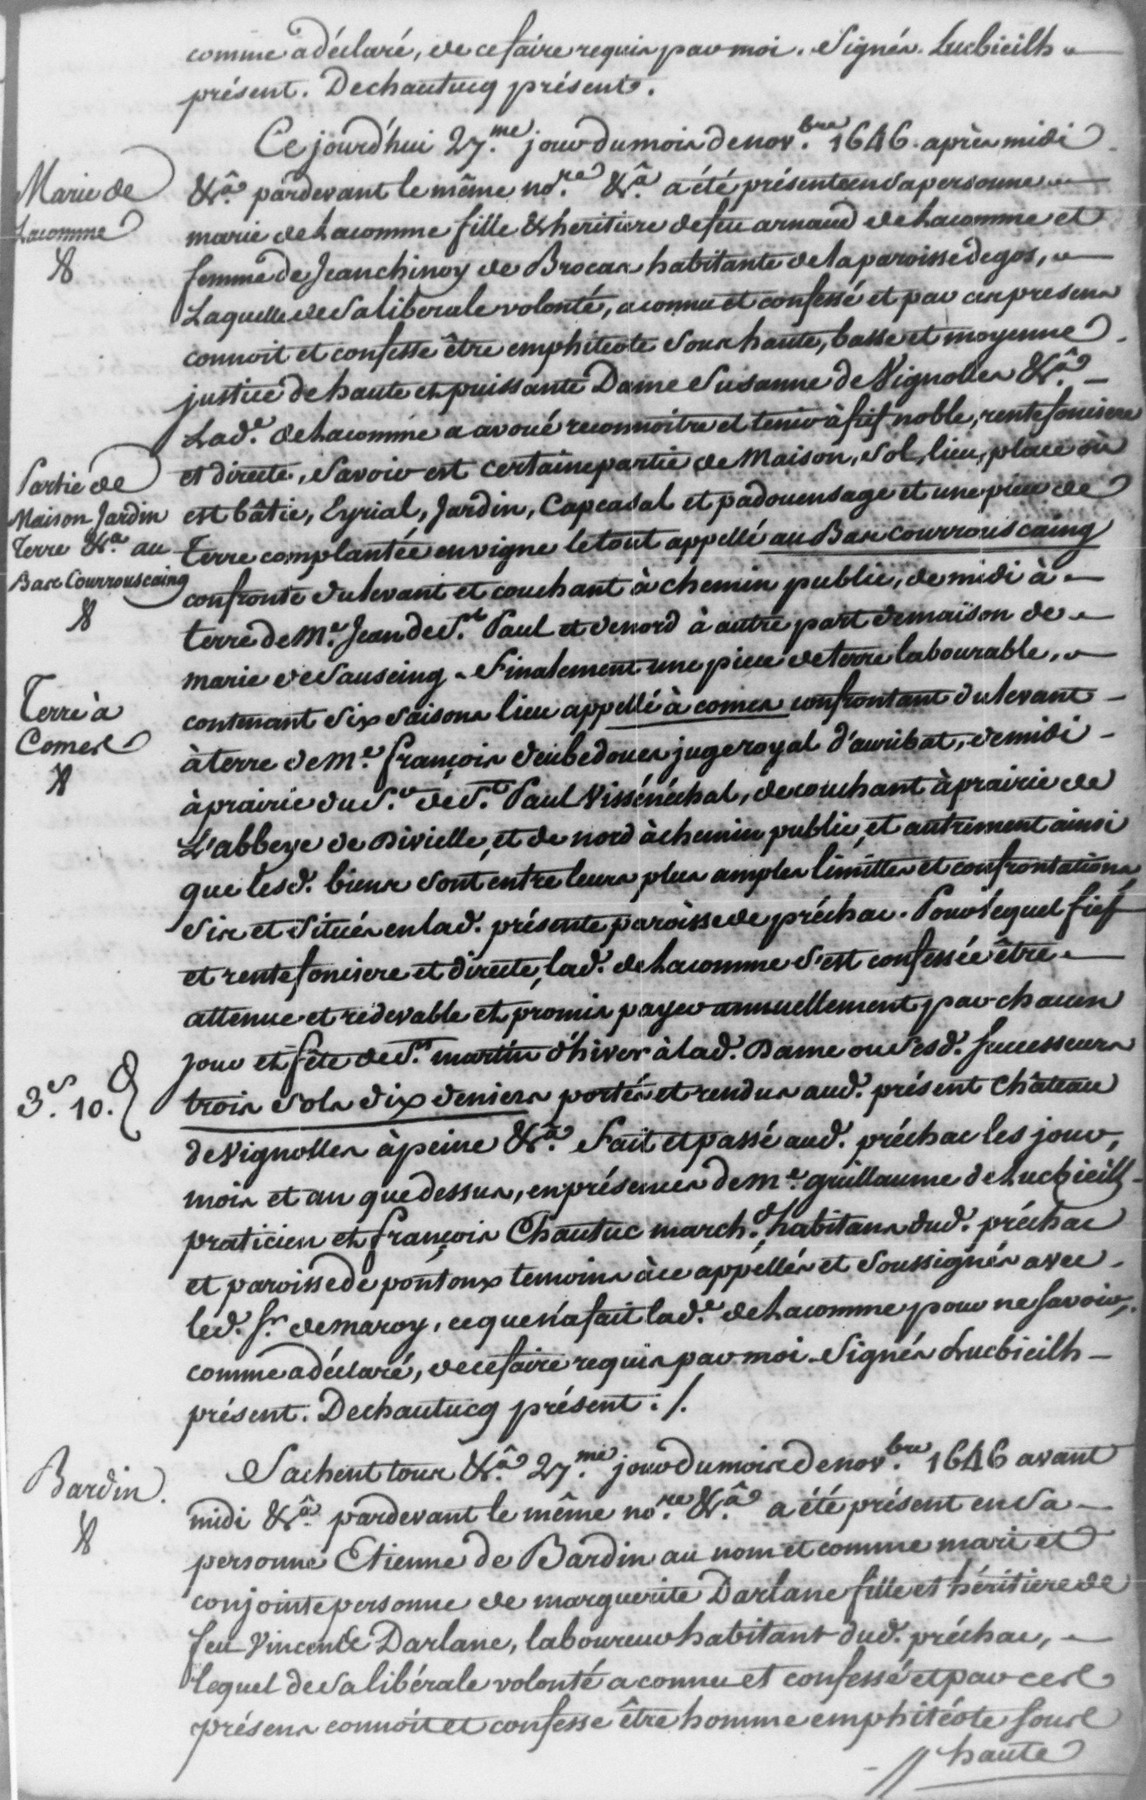 comme a déclaré, de ce faire requis par moi. Signés. Lucbieilh
présent. Dechautucq présent.
Ce jourd'hui 27.me jour du mois de nov.bre 1646. après midi
Marie de
Lacomme
&a. pardevant le même no.re &a a été présente en sa personne
marie de Lacomme fille & heritiere de feu arnaud de Lacomme et
femme de Jean chinoy de Brocas habitante de la paroisse de gos,
Laquelle de sa liberale volonté, a connu et confessé et par ces presens
connoit et confesse être emphiteote sous haute, basse et moyenne
justice de haute et puissante Dame Susanne de Vignolles &a.
Lad.e de Lacomme a avoué reconnoitre et tenir à fief noble, rente fonciere
Partie de
Maison Jardin
Terre &a au
Bas Courrouscaing
et directe, savoir est certaine partie de Maison, sol, lieu, place où
est bâtie, Eyrial, Jardin, Capcasal et padouensage et une piece de
Terre complantée en vigne le tout appellé au Bas Courrouscaing
confronte du levant et couchant à chemin public, de midi à
terre de M.e Jean de S.t Paul et de nord à autre part de maison de
marie de Sauscing. Finalement une piece de terre labourable,
Terre à
Comes
contenant six saisons lieu appellé à comes confrontant du levant
à terre de M.e françois deubedoues juge royal d'auribat, de midi
à prairie du S.r de S.t Paul Vissénéchal, de couchant à prairie de
L'abbeye de Divielle, et de nord à chemin public, et autrement ainsi
que lesd. biens sont entre leurs plus amples limittes et confrontations
sis et situés en lad. présente paroisse de préchac. Pour lequel fief
et rente fonciere et directe, lad. de Lacomme s'est confessée être
attenue et redevable et promis payer annuellement par chacun
jour et fête de S.t martin d'hiver à lad. Dame ou sesd. successeurs
3.s 10.d
trois sols dix deniers portés et rendus aud. présent Château
de Vignolles à peine &a. Fait et passé aud. préchac les jour,
mois et an que dessus, en présences de M.e guillaume de Lucbieilh
praticien et françois Chautuc march.d habitans dud. préchac
et paroisse de pontonx temoins à ce appéllés et soussignés avec
led. S.r de maroy, ce que n'a fait lad.e de Lacomme pour ne savoir,
comme a déclaré, de ce faire requis par moi. Signés Lucbieilh
présent. Dechautucq présent ./.
Bardin.
Sachent tous &a. 27.me jour du mois de nov.bre 1646 avant
midi &a. pardevant le même no.re &a. a été présent en sa
personne Etienne de Bardin au nom et comme mari et
conjointe personne de marguerite Darlane fille et héritiere de
feu Vincent Darlane, laboureur habitant dud. préchac,
lequel de sa libérale volonté a connu et confessé et par ces
présens connoit et confesse être homme emphitéote sous
haute